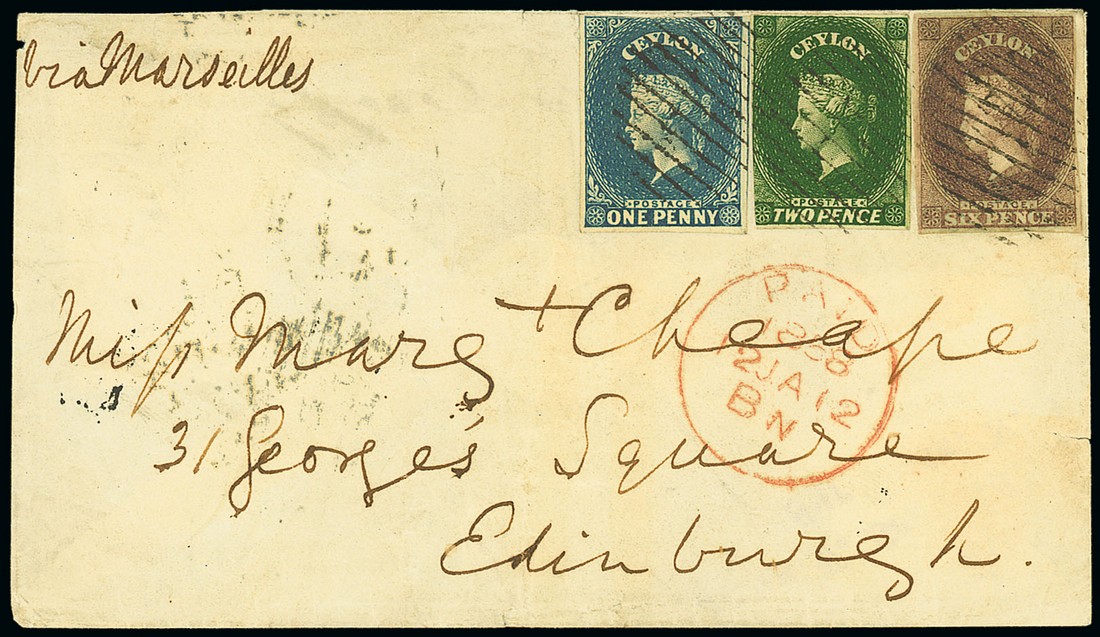 via Marseilles
CEYLON
POSTAGE
ONE PENNY
CEYLON
POSTAGE
TWO PENCE
CEYLON
POSTAGE
SIX PENCE
PAID
2 JA 12
BN
Miss Marg t Cheape
31 George's Square
Edinburgh.